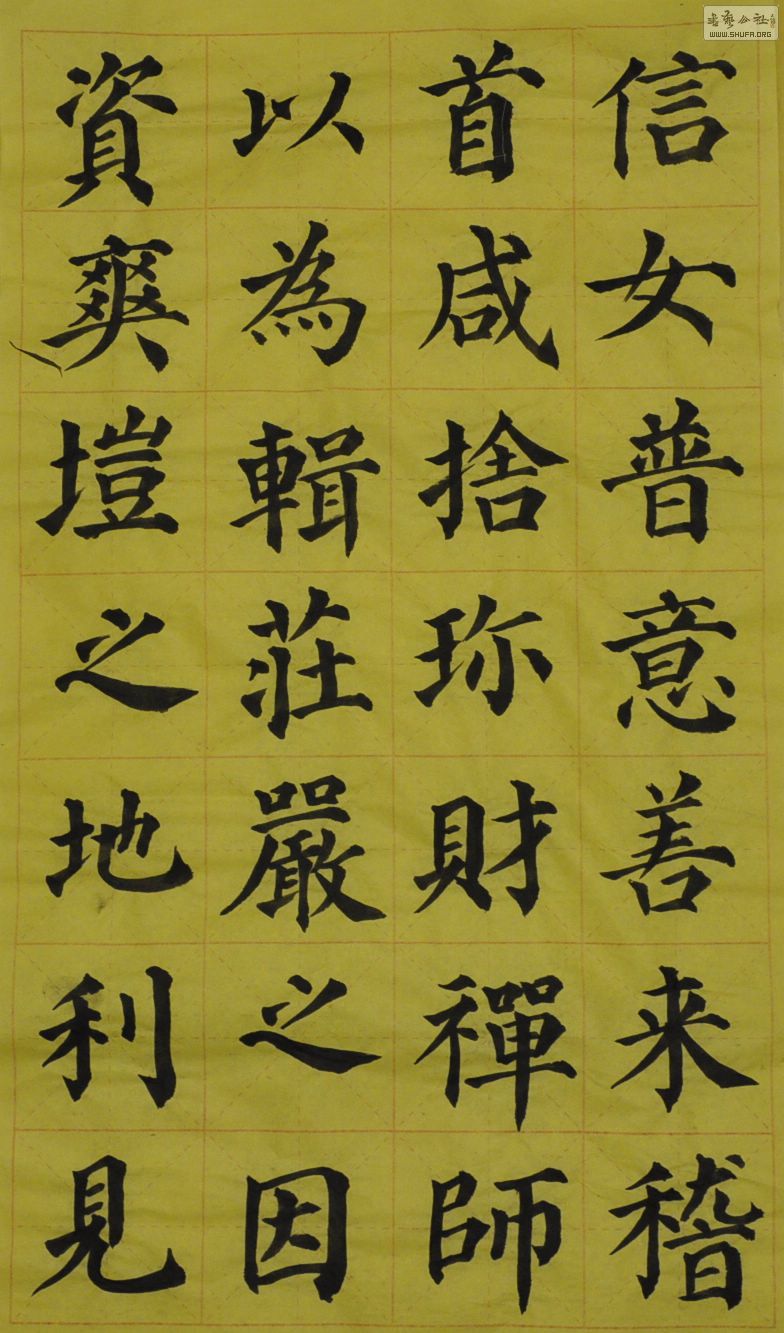 信女普意善来稽
首咸捨珎財禪師
以為輯莊嚴之因
資爽塏之地利見
WWW.SHUFA.ORG